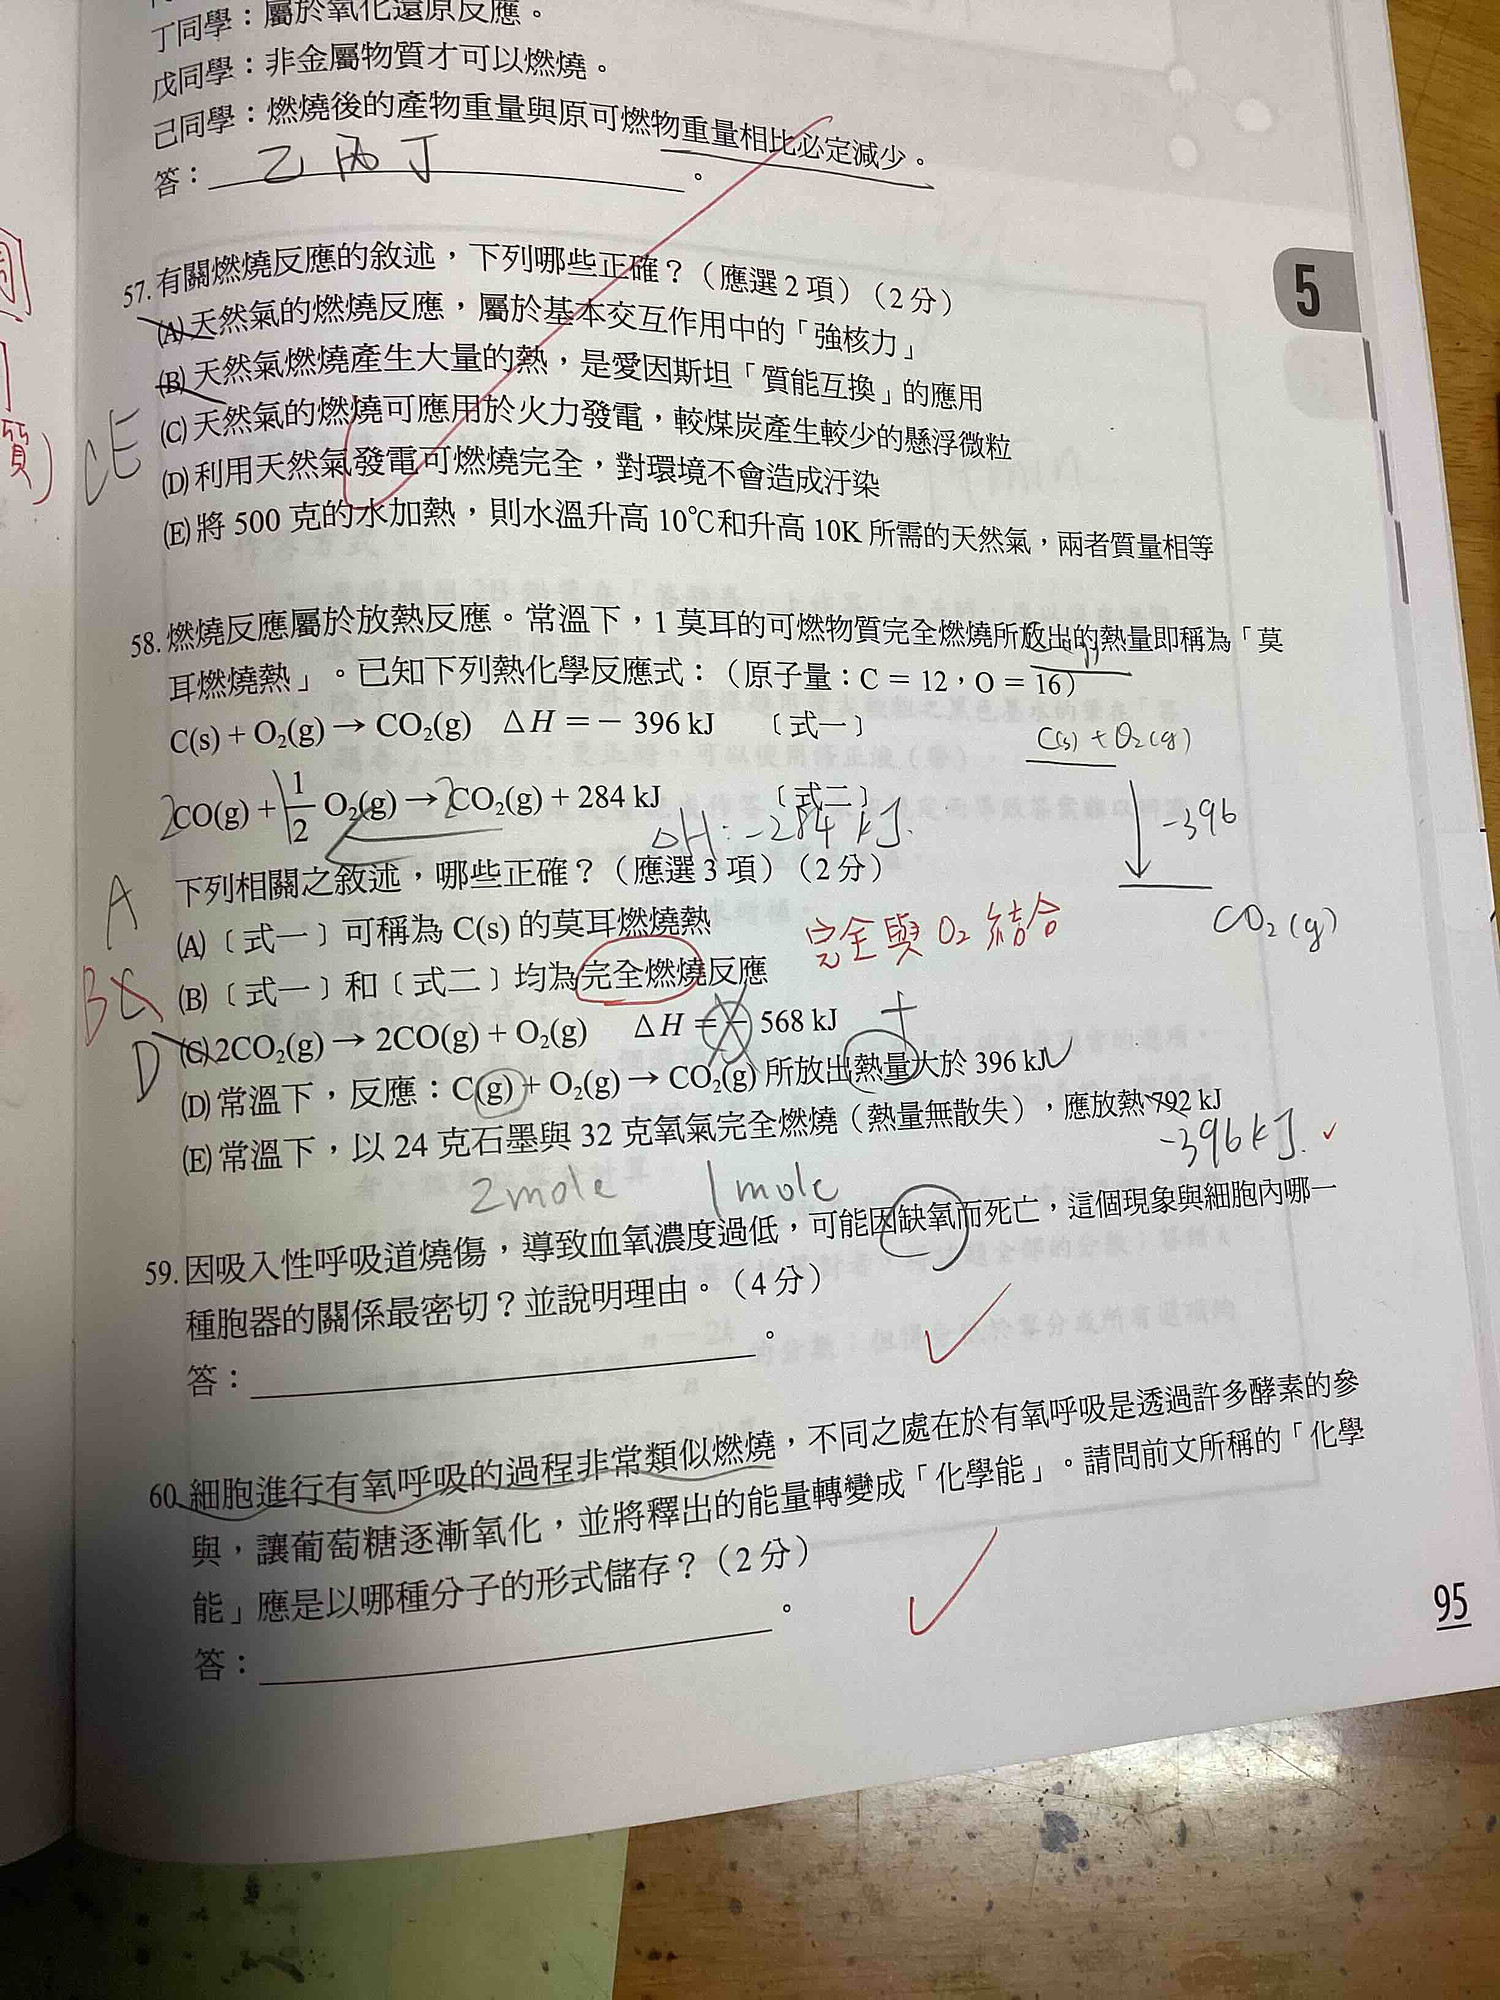 丁同學：屬於氧化還原反應。
戊同學：非金屬物質才可以燃燒。
己同學：燃燒後的產物重量與原可燃物重量相比必定減少。
答：乙丙丁。
57. 有關燃燒反應的敘述，下列哪些正確？（應選2項）（2分）
(A) 天然氣的燃燒反應，屬於基本交互作用中的「強核力」
(B) 天然氣燃燒產生大量的熱，是愛因斯坦「質能互換」的應用
(C) 天然氣的燃燒可應用於火力發電，較煤炭產生較少的懸浮微粒
CE
(D) 利用天然氣發電可燃燒完全，對環境不會造成汙染
(E) 將 500 克的水加熱，則水溫升高 10℃和升高 10K 所需的天然氣，兩者質量相等
5
質)
58. 燃燒反應屬於放熱反應。常溫下，1 莫耳的可燃物質完全燃燒所放出的熱量即稱為「莫
耳燃燒熱」。已知下列熱化學反應式：（原子量：C = 12，O = 16）
C(s) + O₂(g) → CO₂(g)　ΔH = − 396 kJ　〔式一〕
C(s) + O₂(g)
2CO(g) + 1/2 O₂(g) → 2CO₂(g) + 284 kJ　〔式二〕
ΔH: -284 kJ.
-396
CO₂(g)
下列相關之敘述，哪些正確？（應選3項）（2分）
A
(A)〔式一〕可稱為 C(s) 的莫耳燃燒熱
完全與 O₂ 結合
B
(B)〔式一〕和〔式二〕均為完全燃燒反應
(C) 2CO₂(g) → 2CO(g) + O₂(g)　ΔH = − 568 kJ
+
D
(D) 常溫下，反應：C(g) + O₂(g) → CO₂(g) 所放出熱量大於 396 kJ
(E) 常溫下，以 24 克石墨與 32 克氧氣完全燃燒（熱量無散失），應放熱 792 kJ
-396 kJ.
2 mole　1 mole
59. 因吸入性呼吸道燒傷，導致血氧濃度過低，可能因缺氧而死亡，這個現象與細胞內哪一
種胞器的關係最密切？並說明理由。（4分）
答：。
60. 細胞進行有氧呼吸的過程非常類似燃燒，不同之處在於有氧呼吸是透過許多酵素的參
與，讓葡萄糖逐漸氧化，並將釋出的能量轉變成「化學能」。請問前文所稱的「化學
能」應是以哪種分子的形式儲存？（2分）
答：。
95